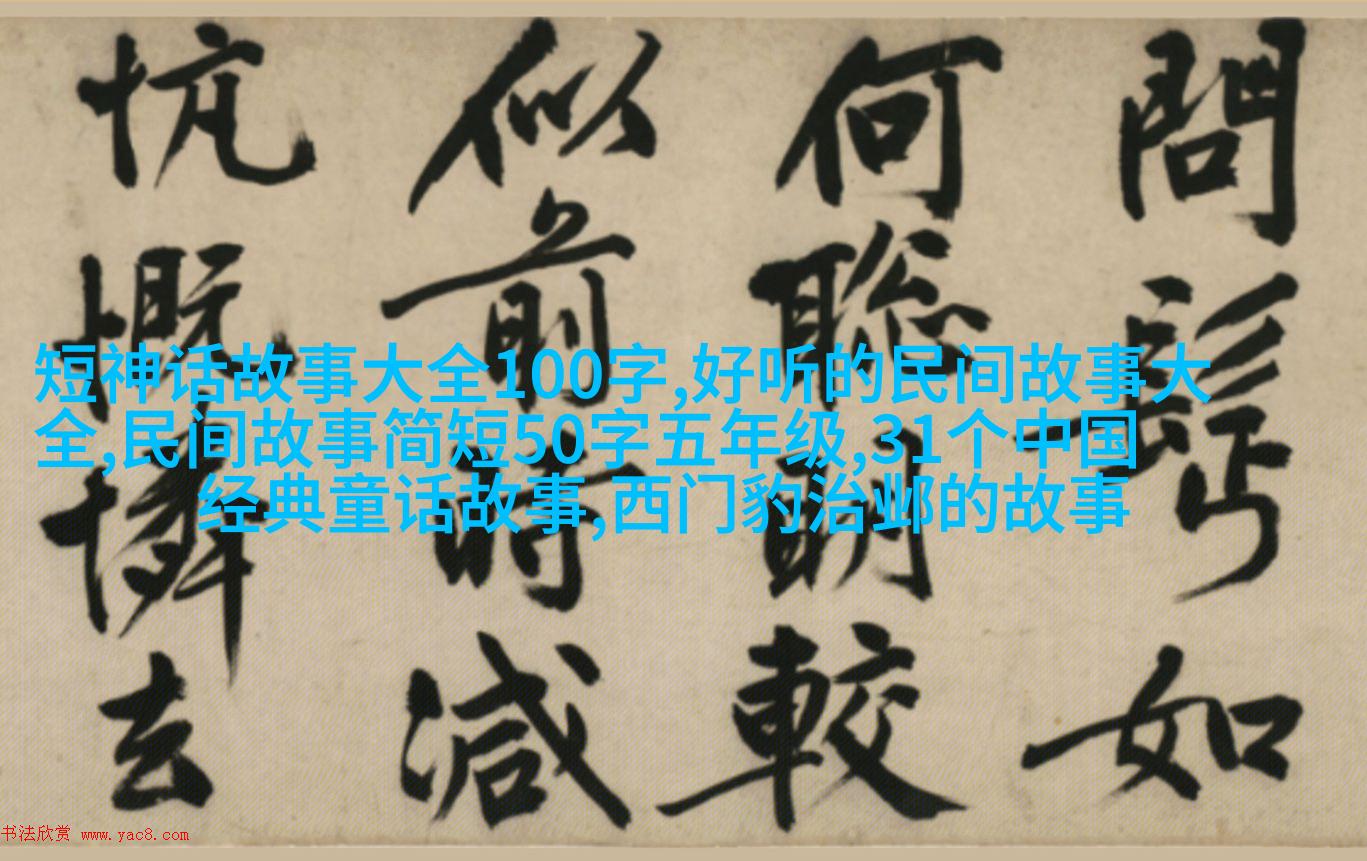 問如
何聰明較
似前時減
忼慨憐去
短神话故事大全100字,好听的民间故事大
全,民间故事简短50字五年级,31个中国
经典童话故事,西门豹治邺的故事
书法欣赏 www.yac8.com